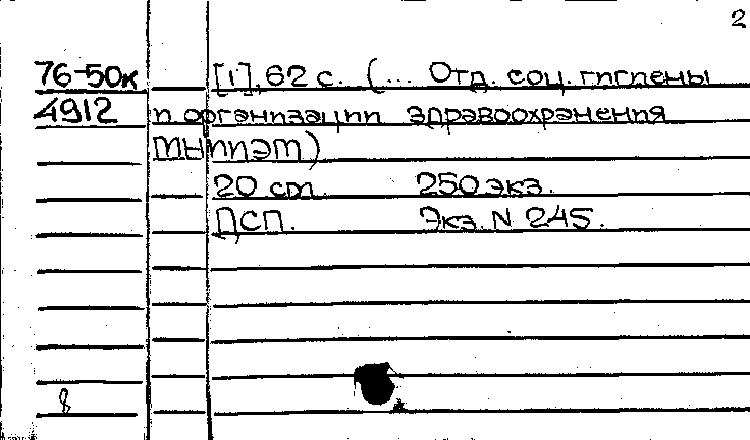 2
76-50к [1], 62 с. (... Отд. соц. гигиены
4912 и организации здравоохранения
МНИИЭМ)
20 см. 250 экз.
ДСП. Экз. N 245.
8